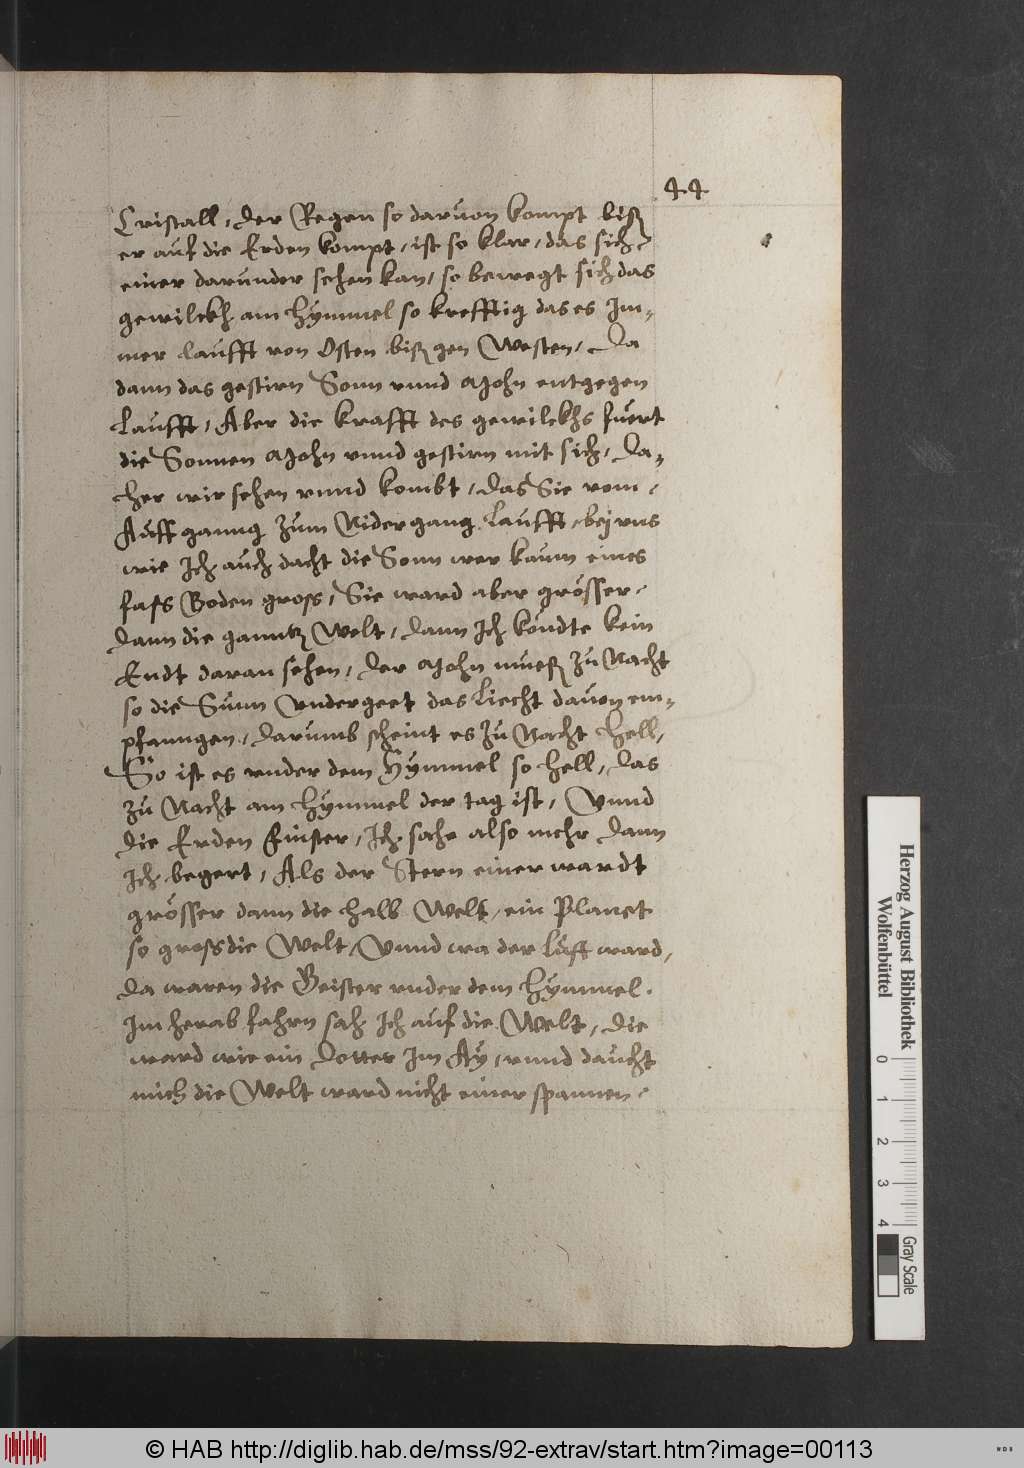 44
Cristall, der Regen so daruon kompt biß
er auf die Erden kompt, ist so klar, das sich
einer darunder sehen kan, so bewegt sich das
gewilckh am Hymmel so krefftig das es Im-
mer laufft von Osten biß gen Westen, Da
dann das gestirn Sonn vnnd Mohn entgegen
Laufft, Aber die krafft des gewilckhs fuert
die Sonnen Mohn vnnd gestirn mit sich, Da-
her wir sehen vnnd kombt, das Sie vom
Auffganng Zum Nidergang Laufft, bej vns
wie Ich auch dacht die Sonn wer kaum eines
fass Boden gross, Sie ward aber grösser
dann die ganntz Welt, dann Ich kondte kein
Endt daran sehen, der Mohn mueß Zu Nacht
so die Sunn Vndergeet das Liecht dauon em-
pfanngen, darumb scheint es Zu Nacht Hell,
So ist es vnder dem Hymmel so hell, das
Zu Nacht am Hymmel der tag ist, Vnnd
die Erden finster, Ich sahe also mehr dann
Ich begert, Als der Stern einer wardt
grösser dann die halb Welt, ein Planet
so gross die Welt, Vnnd wa der Lufft ward,
da waren die Geister vnder dem Hymmel.
Im herab fahrn sah Ich auf die Welt, die
ward wie ein Dotter Im Ay, vnnd daucht
mich die Welt ward nicht einer spannen
Herzog August Bibliothek
Wolfenbüttel
0 1 2 3 4
Gray Scale
© HAB http://diglib.hab.de/mss/92-extrav/start.htm?image=00113
WDB